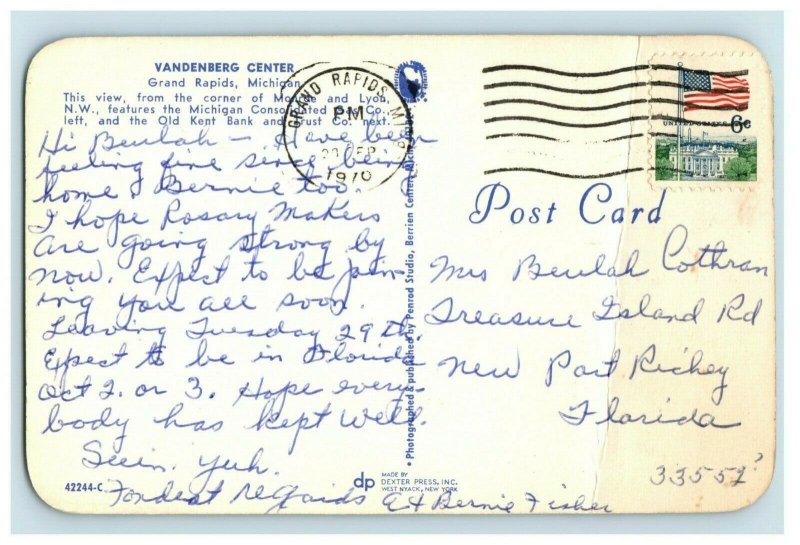 VANDENBERG CENTER
Grand Rapids, Michigan
This view, from the corner of Monroe and Lyon,
N.W., features the Michigan Consolidated Gas Co.,
left, and the Old Kent Bank and Trust Co. next.
Hi Beulah - Have been
feeling fine since being
home. Bernie too.
I hope Rosary Makers
are going strong by
now. Expect to be join-
ing you all soon.
Leaving Tuesday 29th.
Expect to be in Florida
Oct 2. or 3. Hope every-
body has kept well.
Seein. yuh.
Fondest regards & Bernie Fisher
42244-C
dp
MADE BY
DEXTER PRESS, INC.
WEST NYACK, NEW YORK
• Photographed & published by Penrod Studio, Berrien Center,
GRAND RAPIDS, MI
PM
SEP
1970
UNITED STATES
6c
Post Card
Mrs Beulah Cothran
Treasure Island Rd
New Port Richey
Florida
33552?